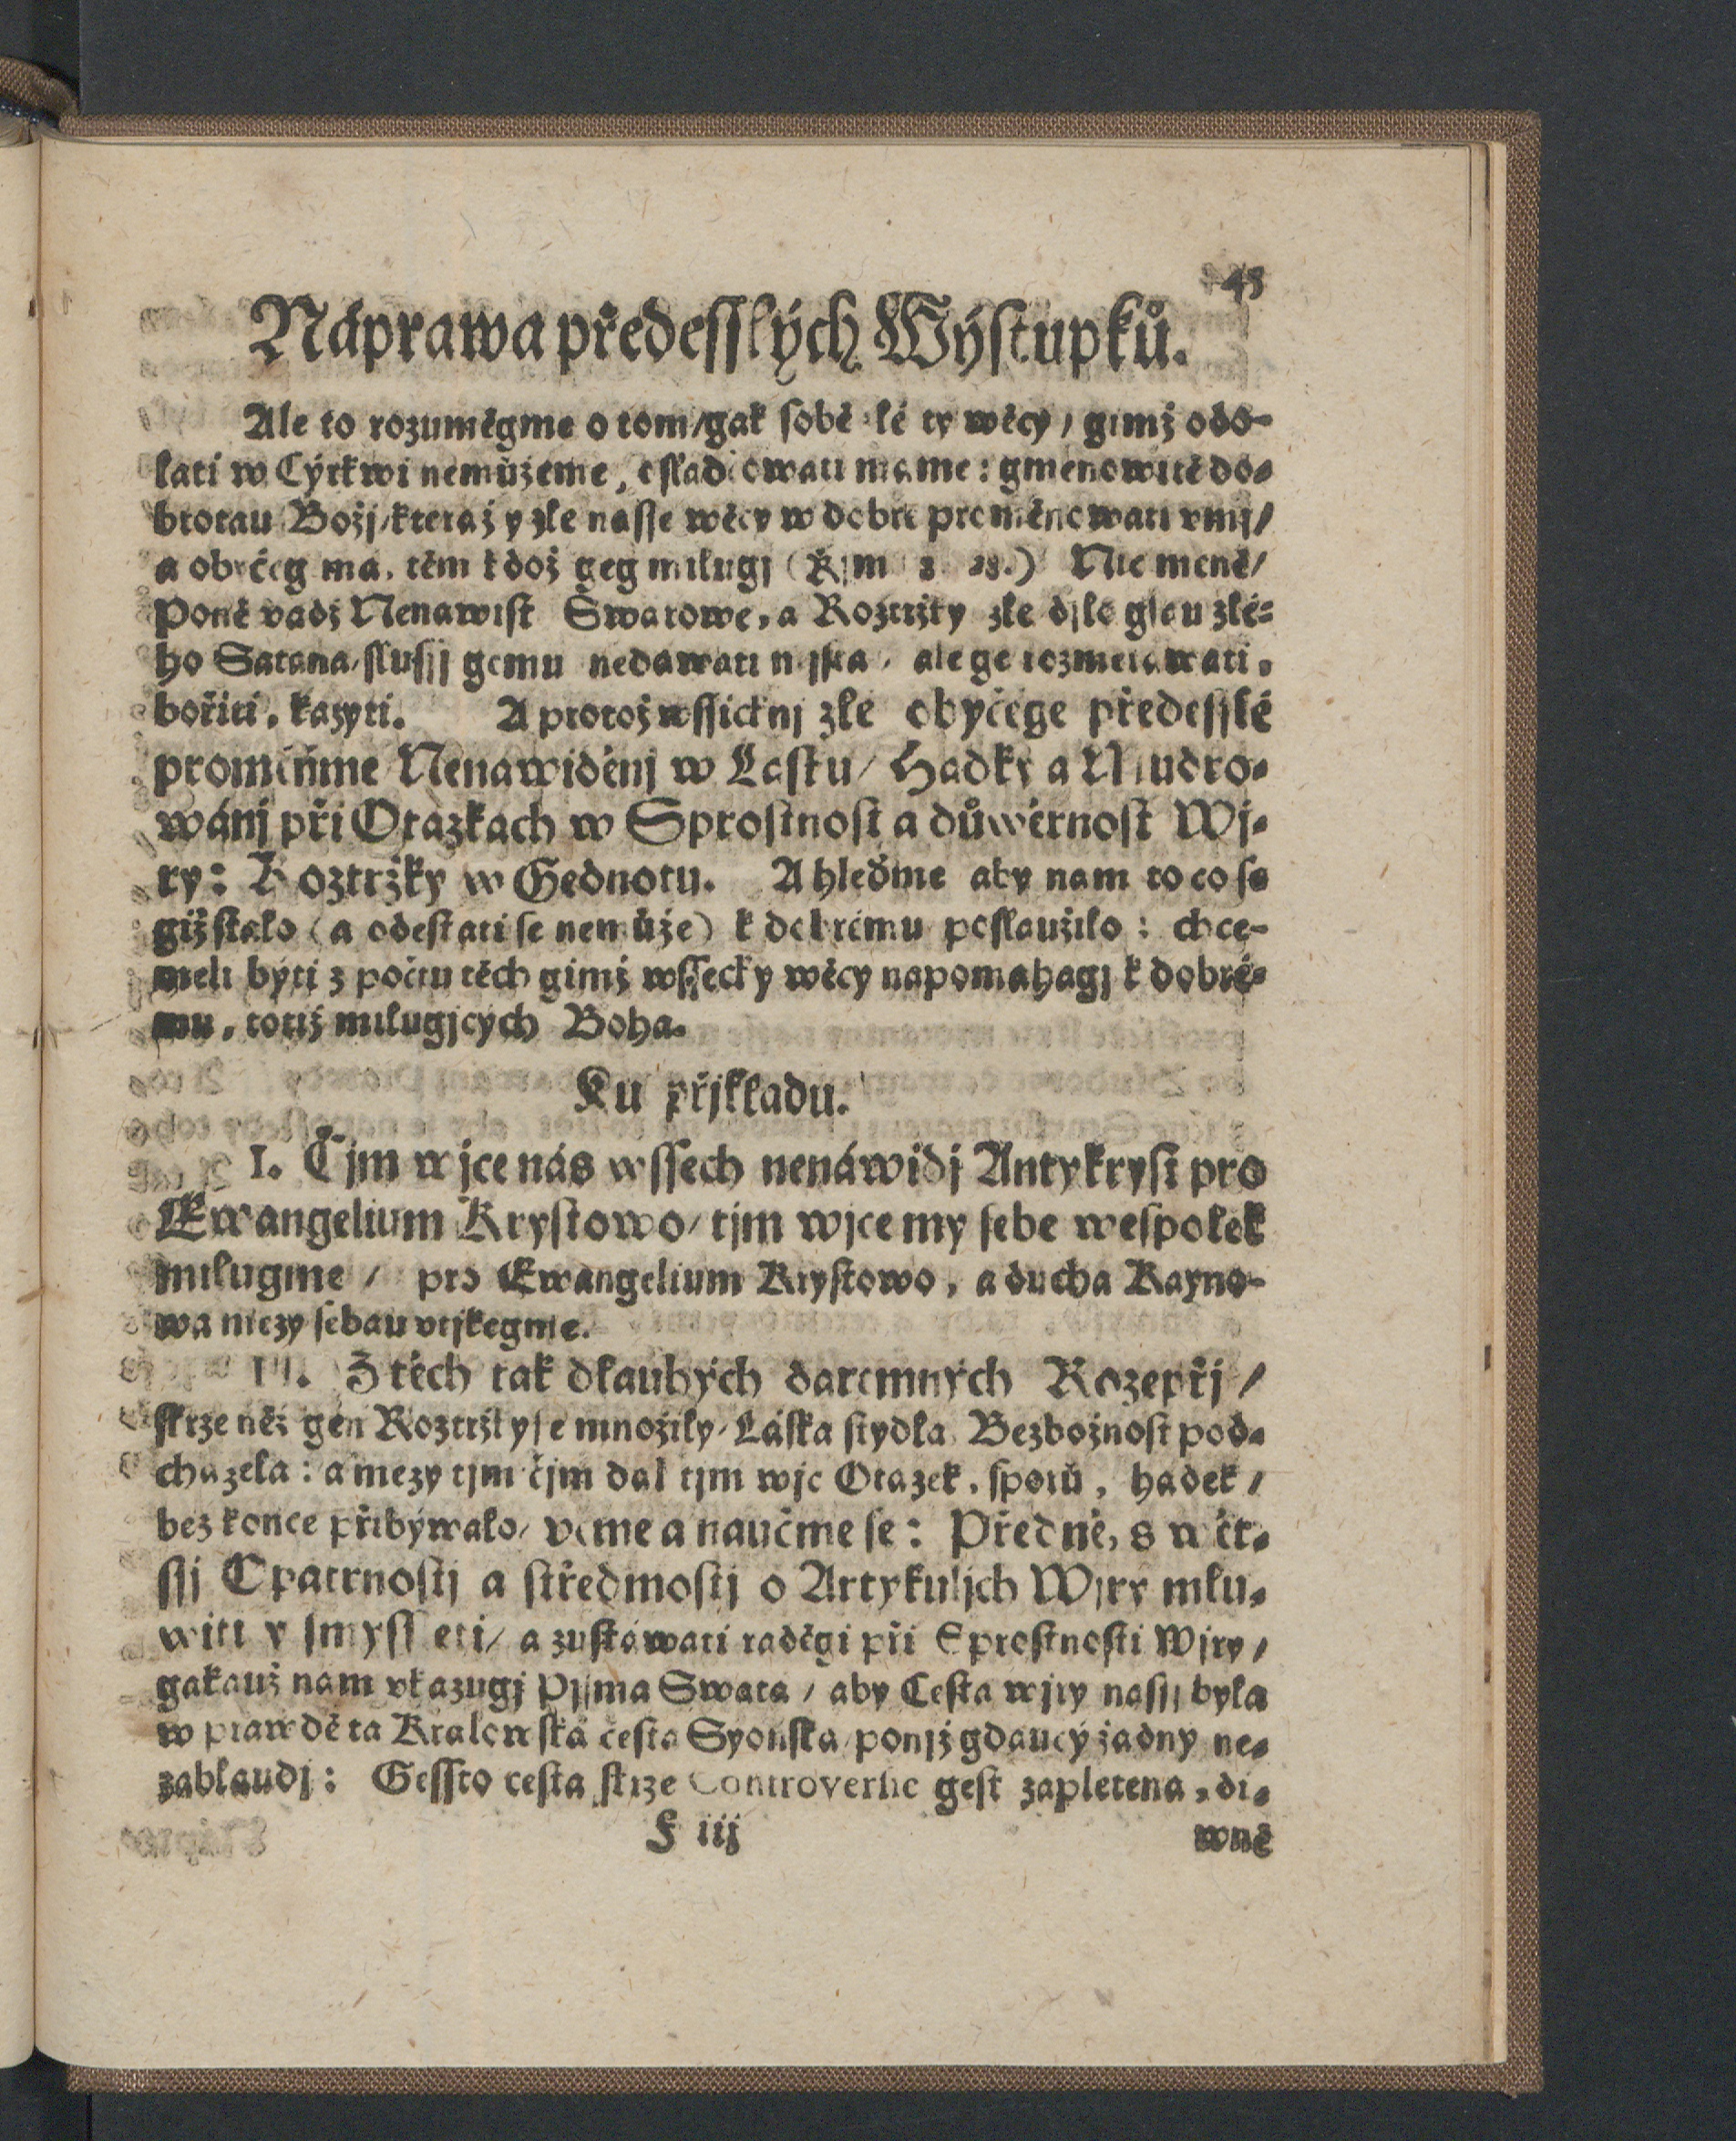 45
Náprawa předesslých Wýstupků.
Ale to rozuměgme o tom/gak sobě zlé ty wěcy / gimž odo-
lati w Cýrkwi nemůžeme, osladiowati mame: gmenowitě do-
brotau Božj/kteraž y zle nasse wěcy w dobré proměnowati vmj/
a obyčeg ma, těm kdož geg milugj (Řjm 8. 28.) Nic meně/
Poně vadž Nenawist Swarowe, a Roztržky zle djlo gsau zlé-
ho Satana/slussj gemu nedawati mjsta, ale ge rozmetawati,
bořiti, kazyti. A protož wssicknj zle obyčege předesslé
promiňme Nenawiděnj w Lasku/ Hadky a Mudro-
wánj při Otazkach w Sprostnost a důwěrnost Wj-
ry: Roztržky w Gednotu. A hleďme aby nam to co se
giž stalo (a odestati se nemůže) k dobrému poslaužilo: chce-
meli býti z počtu těch gimž wssecky wěcy napomahagj k dobré-
mu, totiž milugjcých Boha.
Ku přjkladu.
I. Čjm wjce nás wssech nenáwidj Antykryst pro
Ewangelium Krystowo/ tjm wjce my sebe wespolek
milugme / pro Ewangelium Krystowo, a ducha Kayno-
wa mezy sebau vtjkegme.
II. Z těch tak dlauhých daremných Rozepřj /
skrze něž gen Roztržky se množily/ Láska stydla, Bezbožnost pod-
chazela: a mezy tjm čjm dal tjm wjc Otazek, sporů, hadek /
bez konce přibýwalo/ včme a naučme se: Předně, s wět-
ssj Opatrnostj a střědmostj o Artykuljch Wjry mlu-
witi y smyssleti/ a zustáwati raděgi při Sprostnosti Wjry /
gakauž nam vkazugj Pjsma Swata / aby Cesta wjry nassj byla
w prawdě ta Kralowská cesta Syonska/ po njž gdaucý žadny ne-
zablaudj: Gessto cesta skrze Controversie gest zapletena, di-
F iij wně